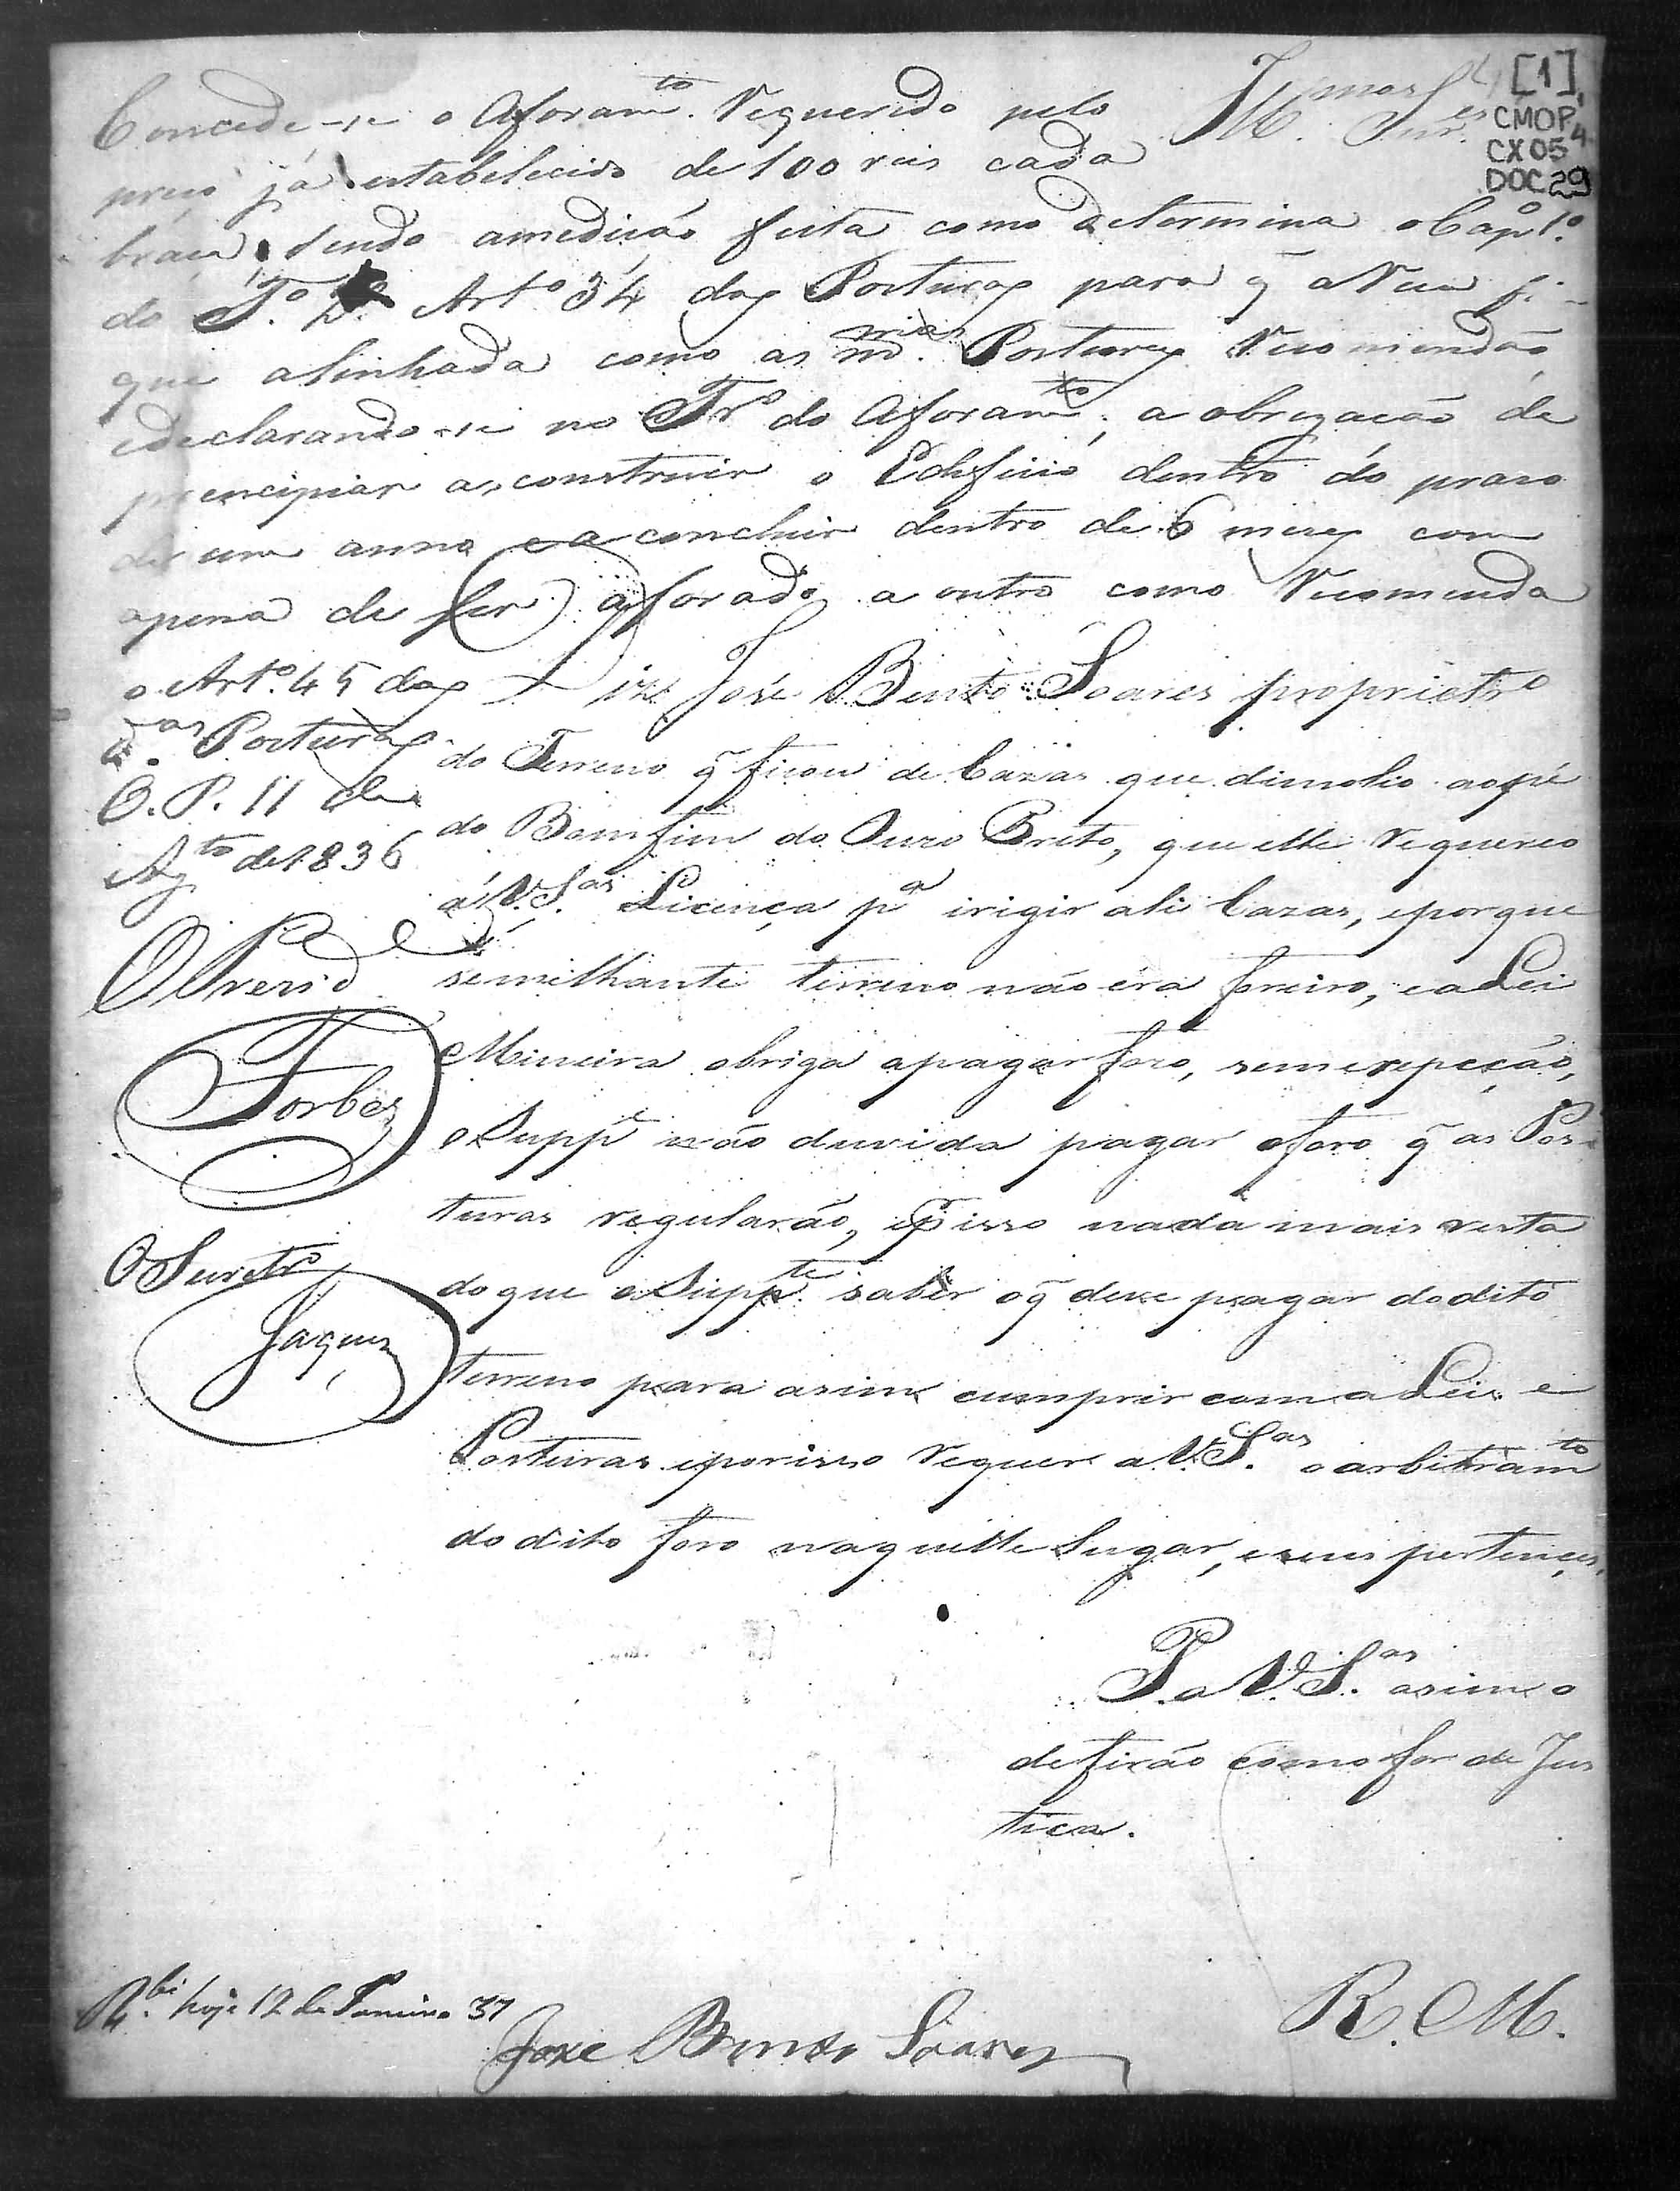 [1]
CMOP
CX 05
DOC 29
Concede-se o Aforam.to Requerido pelo
preço já estabelecido de 100 reis cada
braça, sendo amedição feita como determina o Cap.o 1.o
do T.o Art.o 34 das Posturas para q̃ a Rua fi-
que alinhada como as m.mas Posturas Recomendão,
edeclarando-se no Tr.o do Aforam.to, a obrigação de
prencipiar a construir o Edificio dentro do praso
de um anno e a concluir dentro de 6 mezes com
apena de ser aforado a outro como Recomenda
o Art.o 45 das
d.as Posturas
O. P. 11 de
Ag.to de 1836
O Prezid.e
Forbes
O Secretr.o
Jaques
Ill.mos Sn.res
Diz José Bento Soares proprietr.o
do Terreno q̃ ficou de Cazas que dimolio aopé
do Bomfim do Ouro Preto, que elle Requereo
á V.S.as Licença p.a irigir ali Cazas, eporque
semilhante terreno não éra foreiro, ealei
Mineira obriga apagar foro, sem exepção,
o Supp.e não duvida pagar oforo q̃ as Pos-
turas regularão, e p̃ isso nada mais resta
do que o Supp.te saber oq̃ deve pagar dodito
terreno para asim cumprir com a Lei e
Posturas eporisso Requer a V.S.as o arbitram.to
do dito foro naquelle Lugar, eseus pertences,
P. a V.S.as asim o
defirão como for de Jus
tica.
R. M.
R.bi hoje 12 de Janeiro 37
Joze Bento Soares